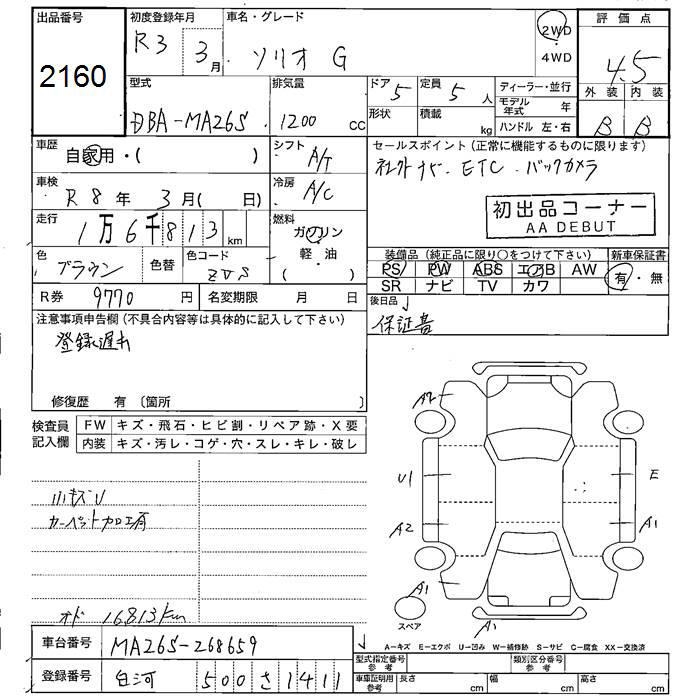 出品番号
2160
初度登録年月
R3 3月
車名・グレード
ソリオ G
2WD
・
4WD
評価点
4.5
外装 内装
B B
型式
DBA-MA26S
排気量
1200 cc
ドア 5
定員 5 人
形状
積載 kg
ディーラー・並行
モデル年式 年
ハンドル 左・右
車歴
自家用・( )
シフト
A/T
セールスポイント(正常に機能するものに限ります)
ナビ. ETC . バックカメラ
初出品コーナー
AA DEBUT
車検
R8年 3月( 日)
冷房
A/C
走行
1万6千813 km
燃料
ガソリン
・軽・油
( )
色
ブラウン
色替
色コード
ZVS
装備品(純正品に限り○をつけて下さい)
新車保証書
PS PW ABS エアB AW
SR ナビ TV カワ
有・無
R券 9770 円
名変期限 月 日
後日品
保証書
注意事項申告欄(不具合内容等は具体的に記入して下さい)
登録遅れ
修復歴 有(箇所 )
検査員記入欄
FW キズ・飛石・ヒビ割・リペア跡・X要
内装 キズ・汚レ・コゲ・穴・スレ・キレ・破レ
小キズU
カーペット加工有
オド 16813km
A2
U1
A2
A1
E
A1
A1
スペア
A=キズ E=エクボ U=凹み W=補修跡 S=サビ C=腐食 XX=交換済
車台番号 MA26S-268659
型式指定番号参考
類別区分番号参考
登録番号 白河 500 さ 1411
車庫証明用参考 長さ cm 幅 cm 高さ cm